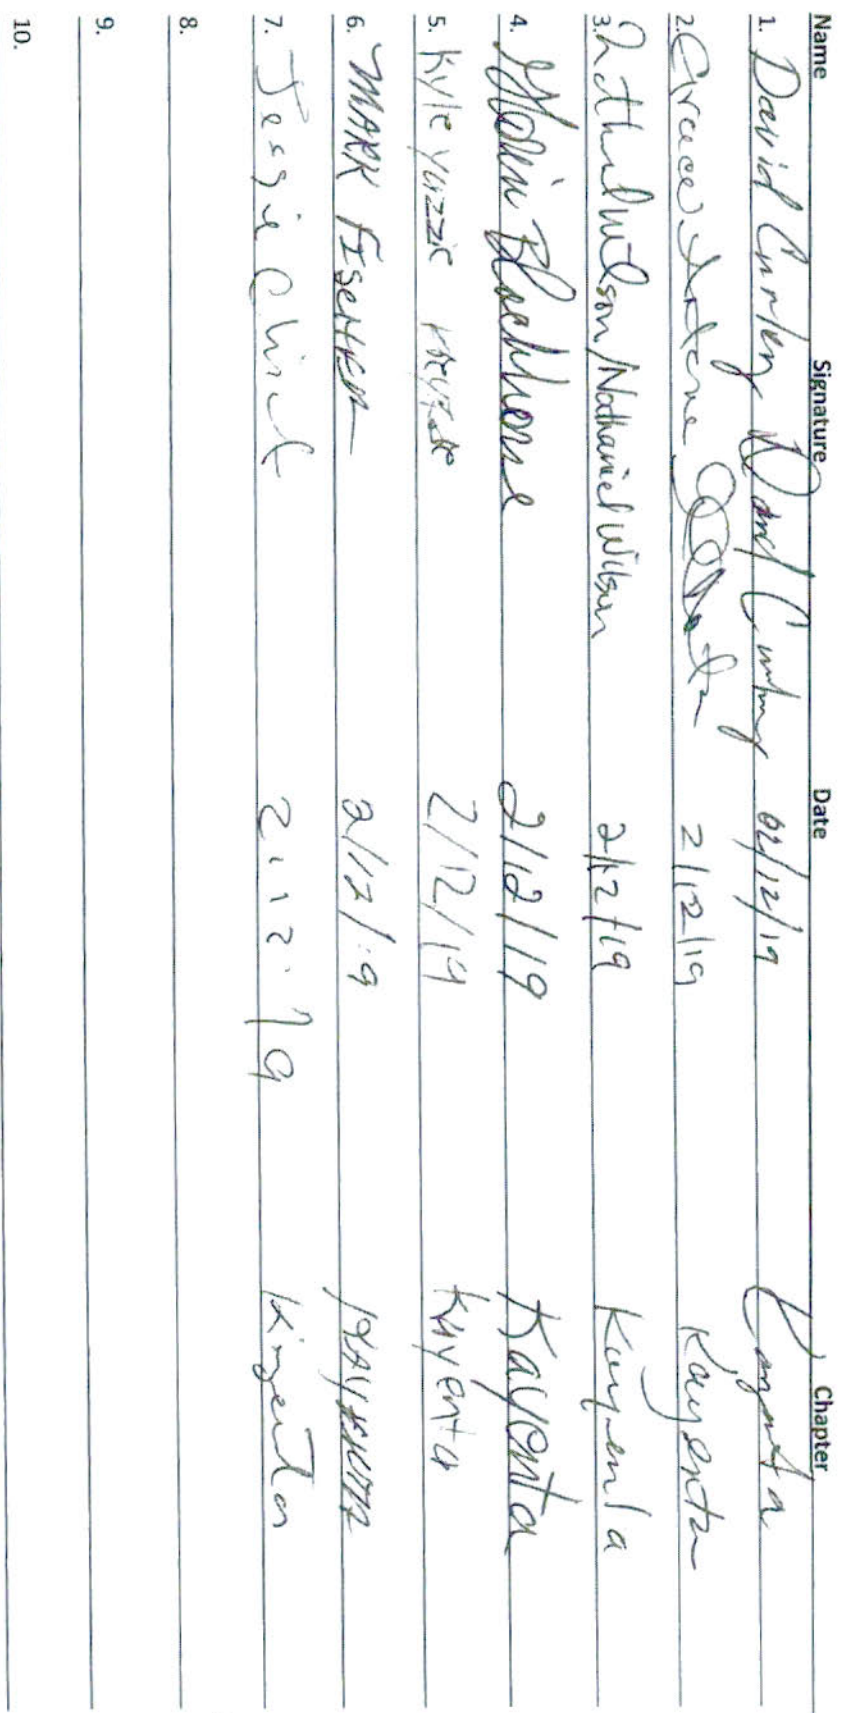 Name Signature Date Chapter
1. David Curley David Curley 02/12/19 Kayenta
2. Grace 2/12/19 Kayenta
3. Wilson/Nathaniel Wilson 2/12/19 Kayenta
4. Blackhorse 2/12/19 Kayenta
5. Kyle Yazzie 2/12/19 Kayenta
6. MARK 2/12/19 KAYENTA
7. Jessie 2.12.19 Kayenta
8.
9.
10.